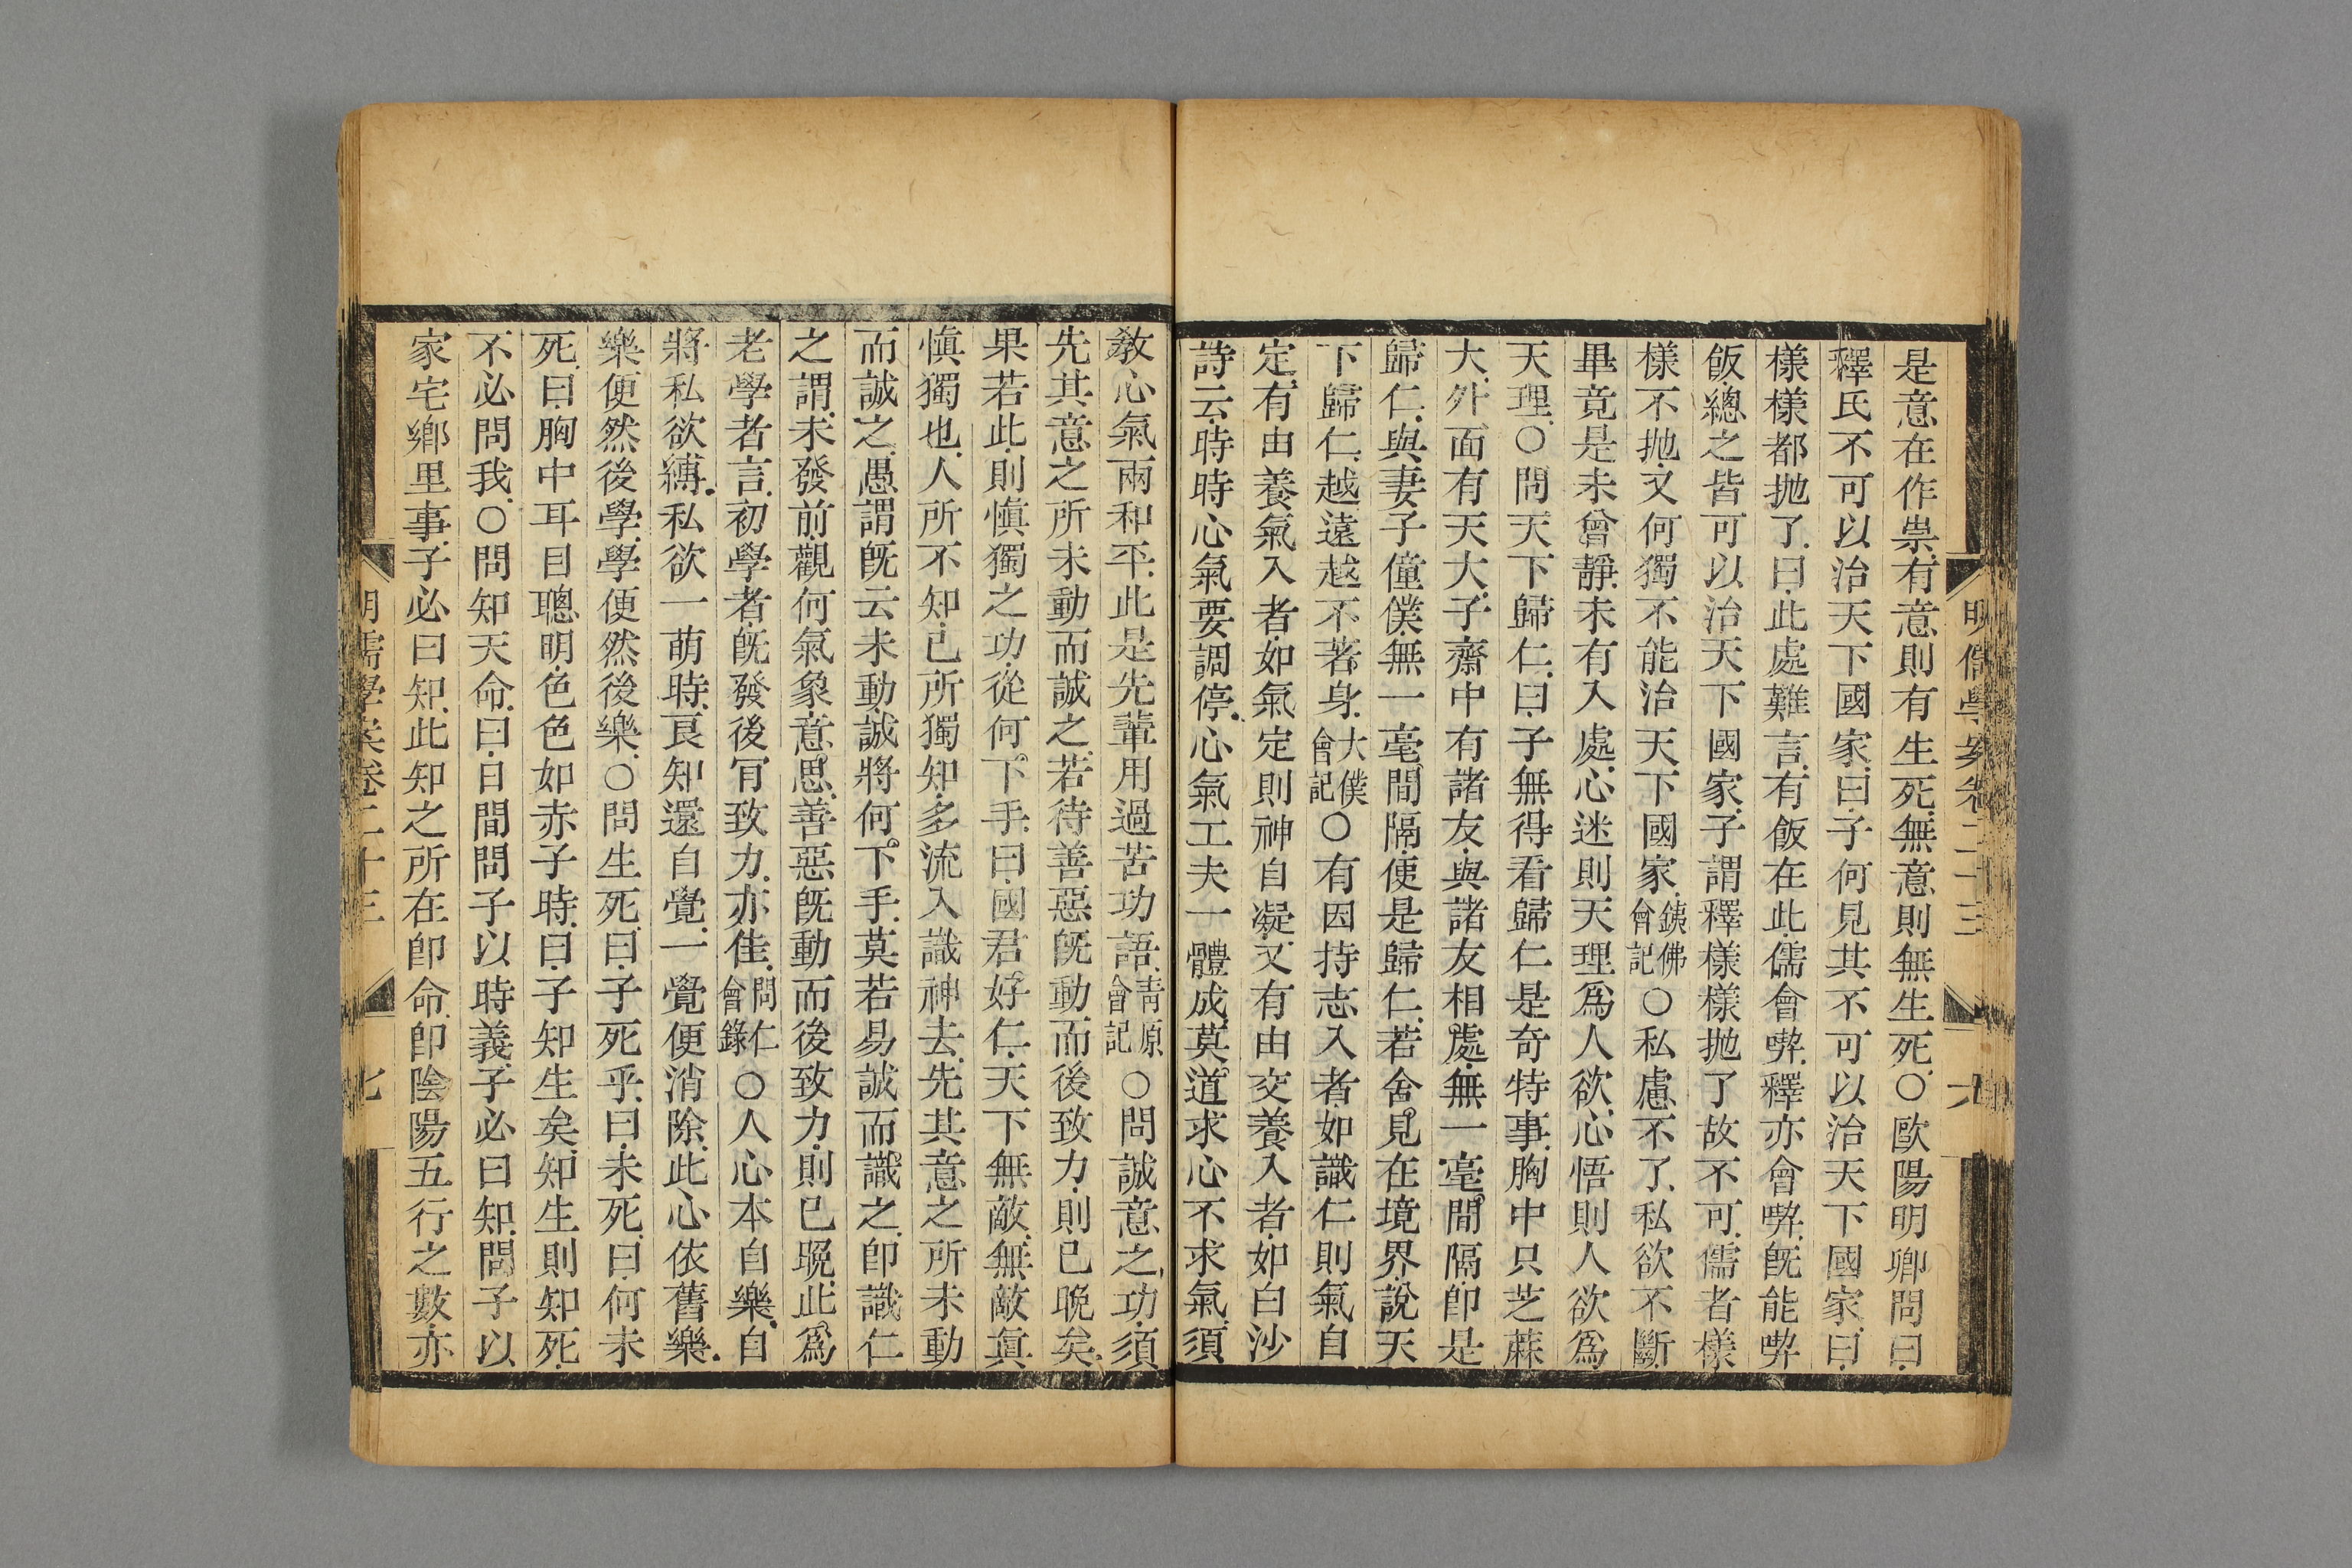 明儒學案卷二十三
六
是意在作祟有意則有生死無意則無生死○歐陽明卿問曰
釋氏不可以治天下國家曰子何見其不可以治天下國家曰
樣樣都拋了曰此處難言有飯在此儒會喫釋亦會喫旣能喫
飯總之皆可以治天下國家子謂釋樣樣拋了故不可儒者樣
樣不拋又何獨不能治天下國家鐵佛會記○私慮不了私欲不斷
畢竟是未曾靜未有入處心迷則天理爲人欲心悟則人欲爲
天理○問天下歸仁曰子無得看歸仁是奇特事胸中只芝蔴
大外面有天大子齋中有諸友與諸友相處無一毫間隔卽是
歸仁與妻子僮僕無一毫間隔便是歸仁若舍見在境界說天
下歸仁越遠越不著身大僕會記○有因持志入者如識仁則氣自
定有由養氣入者如氣定則神自凝又有由交養入者如白沙
詩云時時心氣要調停心氣工夫一體成莫道求心不求氣須
敎心氣兩和平此是先輩用過苦功語靑原會記○問誠意之功須
先其意之所未動而誠之若待善惡旣動而後致力則已晚矣
果若此則愼獨之功從何下手曰國君好仁天下無敵無敵眞
愼獨也人所不知已所獨知多流入識神去先其意之所未動
而誠之愚謂旣云未動誠將何下手莫若易誠而識之卽識仁
之謂未發前觀何氣象意思善惡旣動而後致力則已晚此爲
老學者言初學者旣發後冐致力亦佳問仁會錄○人心本自樂自
將私欲縛私欲一萌時良知還自覺一覺便消除此心依舊樂
樂便然後學學便然後樂○問生死曰子死乎曰未死曰何未
死曰胸中耳目聰明色色如赤子時曰子知生矣知生則知死
不必問我○問知天命曰日間問子以時義子必曰知問子以
家宅鄉里事子必曰知此知之所在卽命卽陰陽五行之數亦
明儒學案卷二十三
七